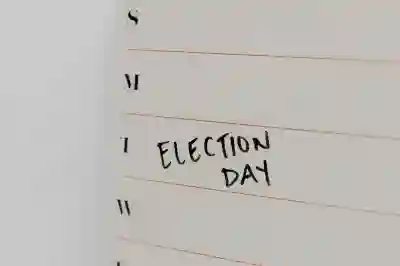 S
M
T
ELECTION
DAY
W